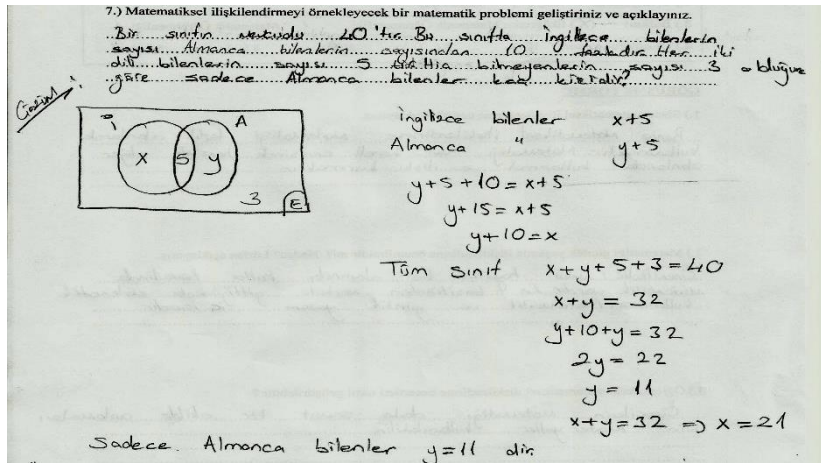 7.) Matematiksel ilişkilendirmeyi örnekleyecek bir matematik problemi geliştiriniz ve açıklayınız.
Bir sınıfın mevcudu 40'tır. Bu sınıfta İngilizce bilenlerin
sayısı Almanca bilenlerin sayısından 10 fazladır. Her iki
dili bilenlerin sayısı 5 Hiç bilmeyenlerin sayısı 3 olduğuna
göre sadece Almanca bilenler kaç kişidir?
Çözüm:
İ A
x 5 y
3 E
İngilizce bilenler x+5
Almanca " y+5
y+5+10=x+5
y+15=x+5
y+10=x
Tüm sınıf x+y+5+3=40
x+y=32
y+10+y=32
2y=22
y=11
x+y=32 => x=21
Sadece Almanca bilenler y=11 dir.